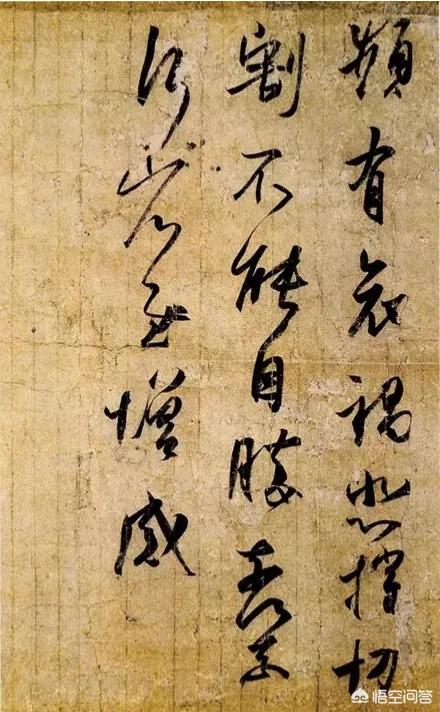 頻有哀禍悲摧切
割不能自勝奈何奈
何省慰增感
悟空问答